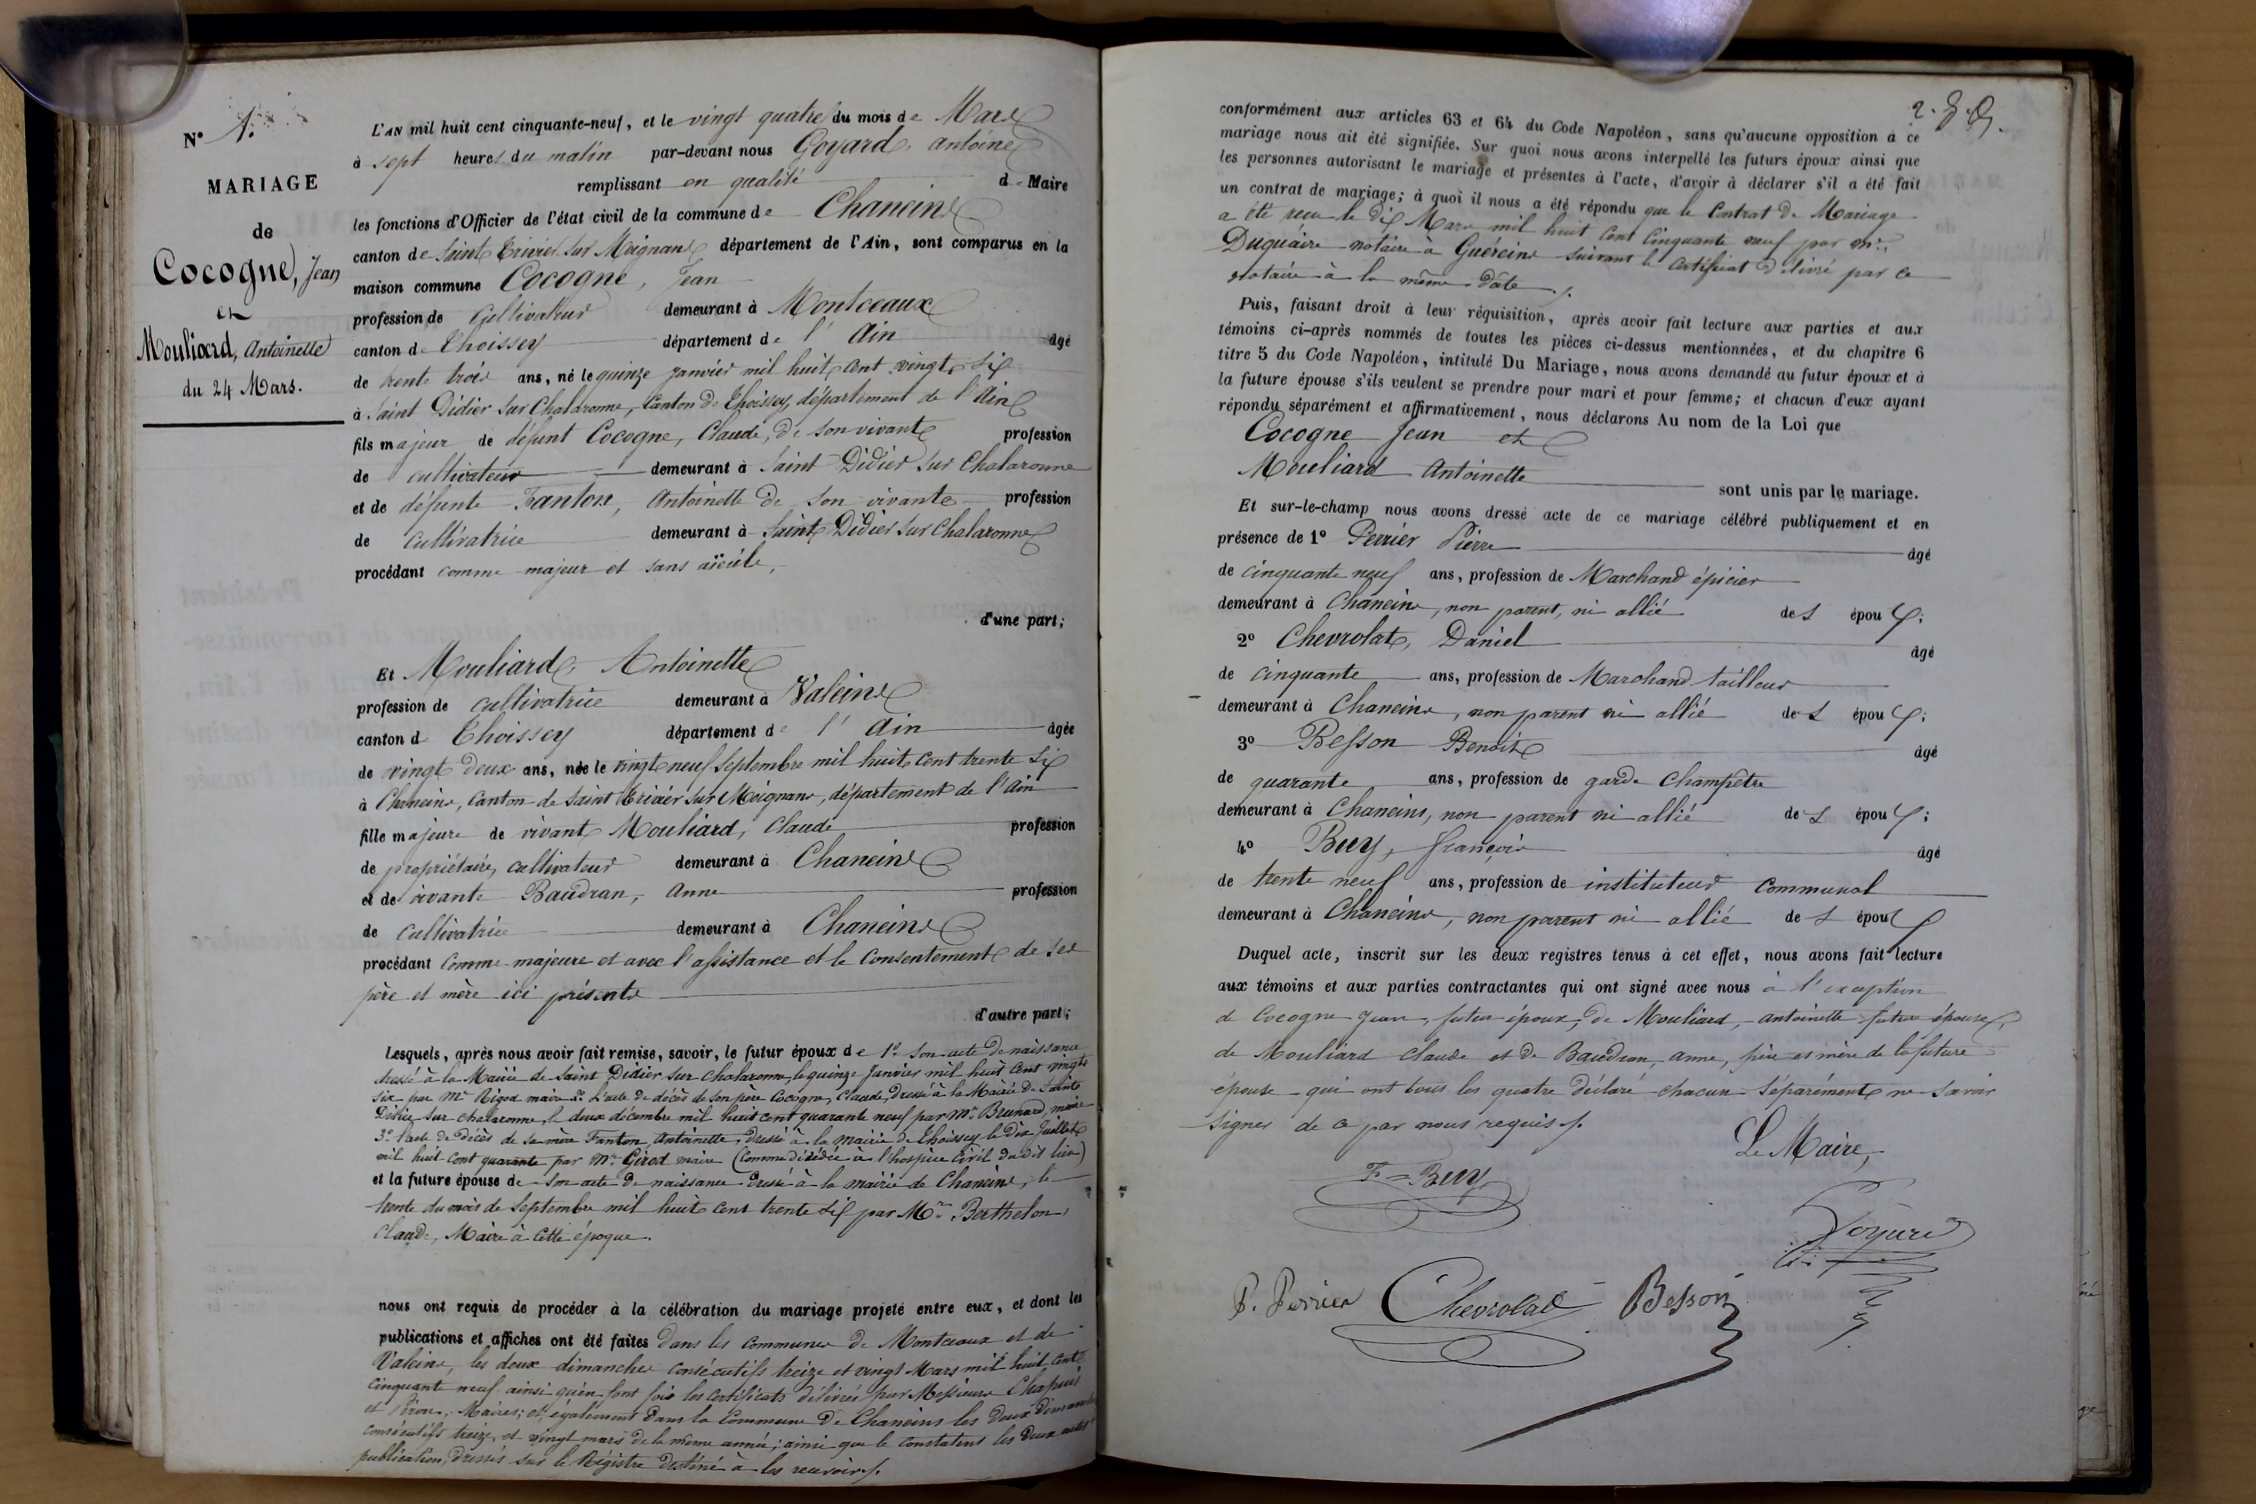 N° 1.
MARIAGE
de
Cocogne, Jean
et
Mouliard, Antoinette
du 24 Mars.
L'AN mil huit cent cinquante-neuf, et le vingt quatre du mois de Mars
à sept heures du matin par-devant nous Goyard, antoine
remplissant en qualité de Maire
les fonctions d'Officier de l'état civil de la commune de Chaneins
canton de Saint Trivier sur Moignans département de l'Ain, sont comparus en la
maison commune Cocogne, Jean
profession de Cultivateur demeurant à Montceaux
canton de Thoissey département de l'Ain âgé
de trente trois ans, né le quinze janvier mil huit cent vingt six
à Saint Didier sur Chalaronne, Canton de Thoissey, département de l'Ain
fils majeur de défunt Cocogne, Claude, de son vivant profession
de cultivateur demeurant à Saint Didier sur Chalaronne
et de défunte Fanton, Antoinette de son vivante profession
de cultivatrice demeurant à Saint Didier sur Chalaronne
procédant comme majeur et sans aïeuls,
d'une part;
Et Mouliard, Antoinette
profession de cultivatrice demeurant à Valeins
canton de Thoissey département de l'Ain âgée
de vingt deux ans, née le vingt neuf Septembre mil huit cent trente six
à Chaneins, Canton de Saint Trivier sur Moignans, département de l'Ain
fille majeure de vivant Mouliard, Claude profession
de propriétaire, cultivateur demeurant à Chaneins
et de vivante Baudran, Anne profession
de cultivatrice demeurant à Chaneins
procédant comme majeure et avec l'assistance et le Consentement de ses
père et mère ici présents
d'autre part;
Lesquels, après nous avoir fait remise, savoir, le futur époux de 1° Son acte de naissance
dressé à la Mairie de Saint Didier sur Chalaronne, le quinze Janvier mil huit cent vingt
six par Mr Rigod maire 2° L'acte de décès de son père Cocogne, Claude, dressé à la Mairie de Saint
Didier sur Chalaronne, le deux décembre mil huit cent quarante neuf par Mr Brunard, maire
3° l'acte de décès de sa mère Fanton, Antoinette, dressé à la mairie de Thoissey le dix Juillet
mil huit cent quarante par Mr Girod maire (Comme décédée à l'hospice Civil dudit lieu)
et la future épouse de Son acte de naissance dressé à la mairie de Chaneins, le
trente du mois de Septembre mil huit cent trente six par Mr Berthelon,
Claude, Maire à cette époque.
nous ont requis de procéder à la célébration du mariage projeté entre eux, et dont les
publications et affiches ont été faites dans les communes de Montceaux et de
Valeins, les deux dimanches consécutifs treize et vingt Mars mil huit cent
cinquante neuf ainsi qu'en font foi les certificats délivrés par Messieurs Chapuis
et Maires; et également dans la Commune de Chaneins les deux dimanches
consécutifs treize et vingt mars de la même année; ainsi que le constatent les deux actes
publication, dressés sur le Régistre destiné à les recevoir.
2. G.A.
conformément aux articles 63 et 64 du Code Napoléon, sans qu'aucune opposition à ce
mariage nous ait été signifiée. Sur quoi nous avons interpellé les futurs époux ainsi que
les personnes autorisant le mariage et présentes à l'acte, d'avoir à déclarer s'il a été fait
un contrat de mariage; à quoi il nous a été répondu que le Contrat de Mariage
a été reçu le dix Mars mil huit cent Cinquante neuf par Mr
Duquaire notaire à Guéreins suivant le Certificat délivré par ce
notaire à la même date.
Puis, faisant droit à leur réquisition, après avoir fait lecture aux parties et aux
témoins ci-après nommés de toutes les pièces ci-dessus mentionnées, et du chapitre 6
titre 5 du Code Napoléon, intitulé Du Mariage, nous avons demandé au futur époux et à
la future épouse s'ils veulent se prendre pour mari et pour femme; et chacun d'eux ayant
répondu séparément et affirmativement, nous déclarons Au nom de la Loi que
Cocogne Jean et
Mouliard Antoinette
sont unis par le mariage.
Et sur-le-champ nous avons dressé acte de ce mariage célébré publiquement et en
présence de 1° Perrier Pierre âgé
de cinquante neuf ans, profession de Marchand épicier
demeurant à Chaneins, non parent, ni allié des époux;
2° Chevrolat, Daniel âgé
de cinquante ans, profession de Marchand tailleur
demeurant à Chaneins, non parent ni allié des époux;
3° Besson Benoit âgé
de quarante ans, profession de garde champêtre
demeurant à Chaneins, non parent ni allié des époux;
4° Buy, françois âgé
de trente neuf ans, profession de instituteur communal
demeurant à Chaneins, non parent ni allié des époux
Duquel acte, inscrit sur les deux registres tenus à cet effet, nous avons fait lecture
aux témoins et aux parties contractantes qui ont signé avec nous à l'exception
de Cocogne Jean, futur époux, de Mouliard, antoinette future épouse,
de Mouliard Claude et de Baudran, anne, père et mère de la future
épouse qui ont tous les quatre déclaré chacun séparément ne savoir
signer de ce par nous requis.
Le Maire,
F = Buy
Goyard
P. Perrier Chevrolat Besson